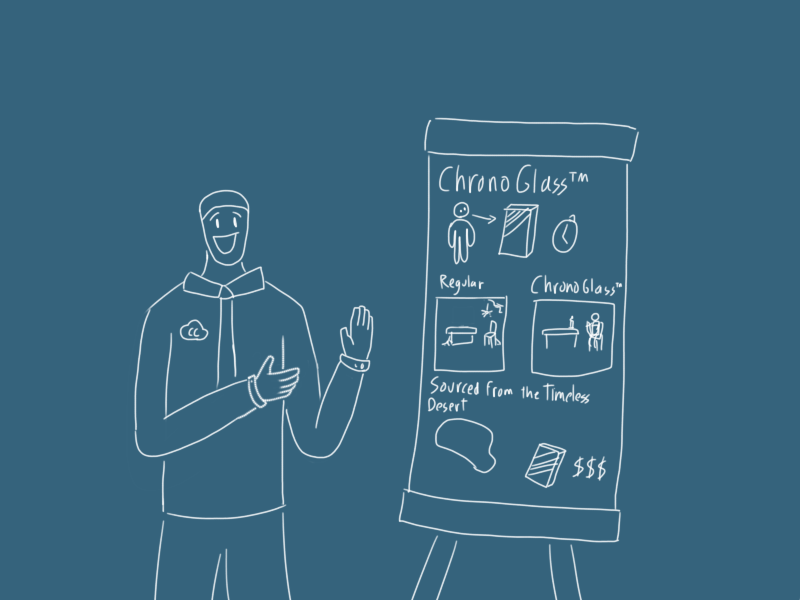 ChronoGlass™
Regular
ChronoGlass™
Sourced from the Timeless
Desert
$$$
CC